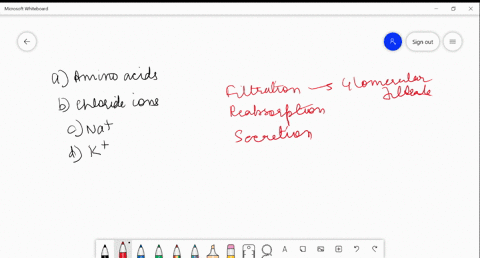 Microsoft Whiteboard
Sign out
a) Amino acids
b) Chloride ions
c) Na+
d) K+
Filtration → Glomerular
filtrate
Reabsorption
Secretion